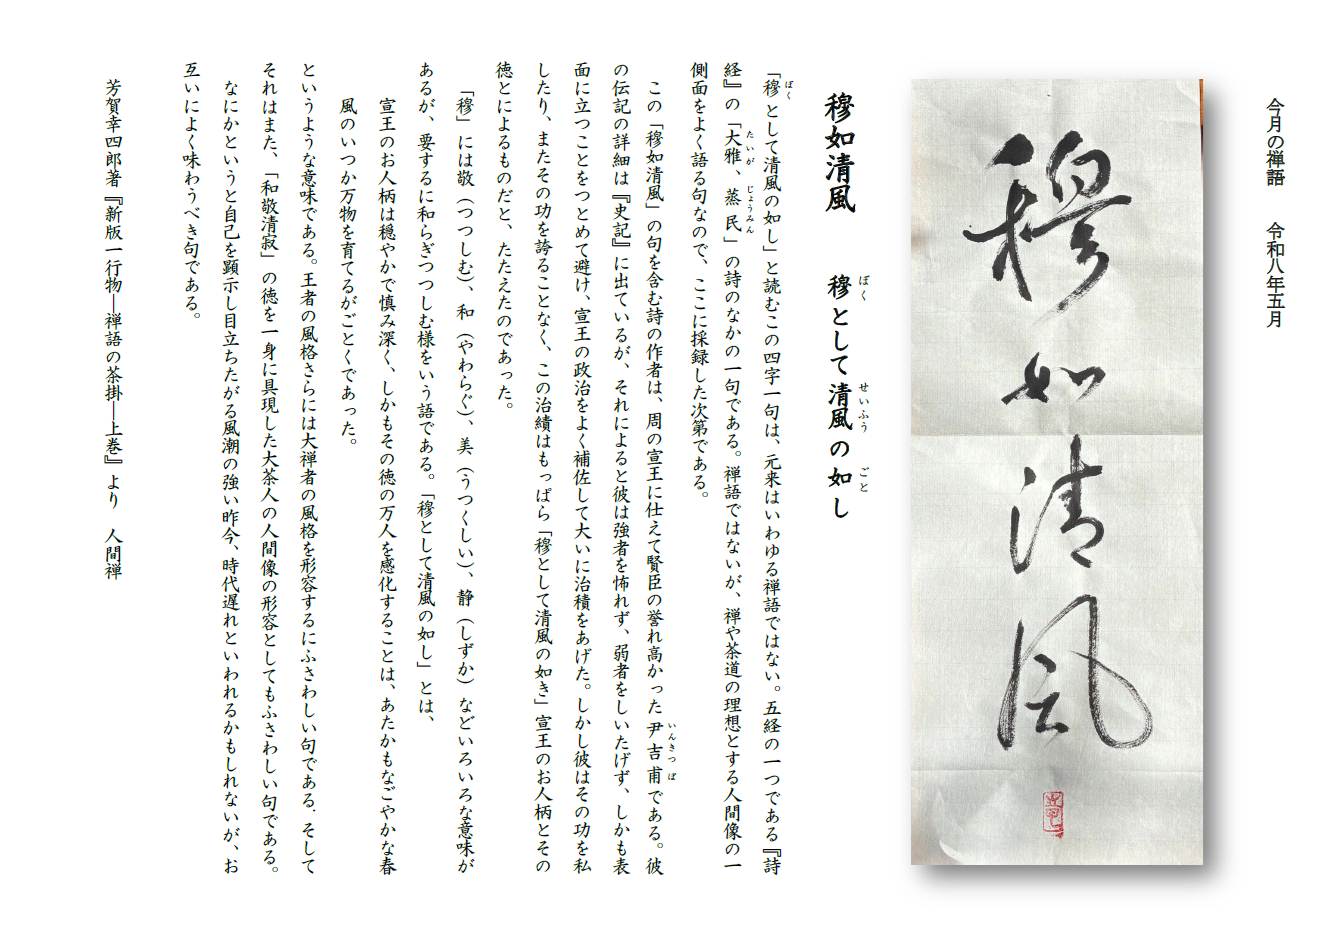 今月の禅語　令和八年五月
穆如清風
穆如清風　穆として清風の如し
ぼく　せいふう　ごと
「穆として清風の如し」と読むこの四字一句は、元来はいわゆる禅語ではない。五経の一つである『詩
ぼく
経』の「大雅、蒸民」の詩のなかの一句である。禅語ではないが、禅や茶道の理想とする人間像の一
たいが　じょうみん
側面をよく語る句なので、ここに採録した次第である。
この「穆如清風」の句を含む詩の作者は、周の宣王に仕えて賢臣の誉れ高かった尹吉甫である。彼
いんきつぽ
の伝記の詳細は『史記』に出ているが、それによると彼は強者を怖れず、弱者をしいたげず、しかも表
面に立つことをつとめて避け、宣王の政治をよく補佐して大いに治積をあげた。しかし彼はその功を私
したり、またその功を誇ることなく、この治績はもっぱら「穆として清風の如き」宣王のお人柄とその
徳とによるものだと、たたえたのであった。
「穆」には敬（つつしむ）、和（やわらぐ）、美（うつくしい）、静（しずか）などいろいろな意味が
あるが、要するに和らぎつつしむ様をいう語である。「穆として清風の如し」とは、
宣王のお人柄は穏やかで慎み深く、しかもその徳の万人を感化することは、あたかもなごやかな春
風のいつか万物を育てるがごとくであった。
というような意味である。王者の風格さらには大禅者の風格を形容するにふさわしい句である．そして
それはまた、「和敬清寂」の徳を一身に具現した大茶人の人間像の形容としてもふさわしい句である。
なにかというと自己を顕示し目立ちたがる風潮の強い昨今、時代遅れといわれるかもしれないが、お
互いによく味わうべき句である。
芳賀幸四郎著『新版一行物―禅語の茶掛―上巻』より　人間禅